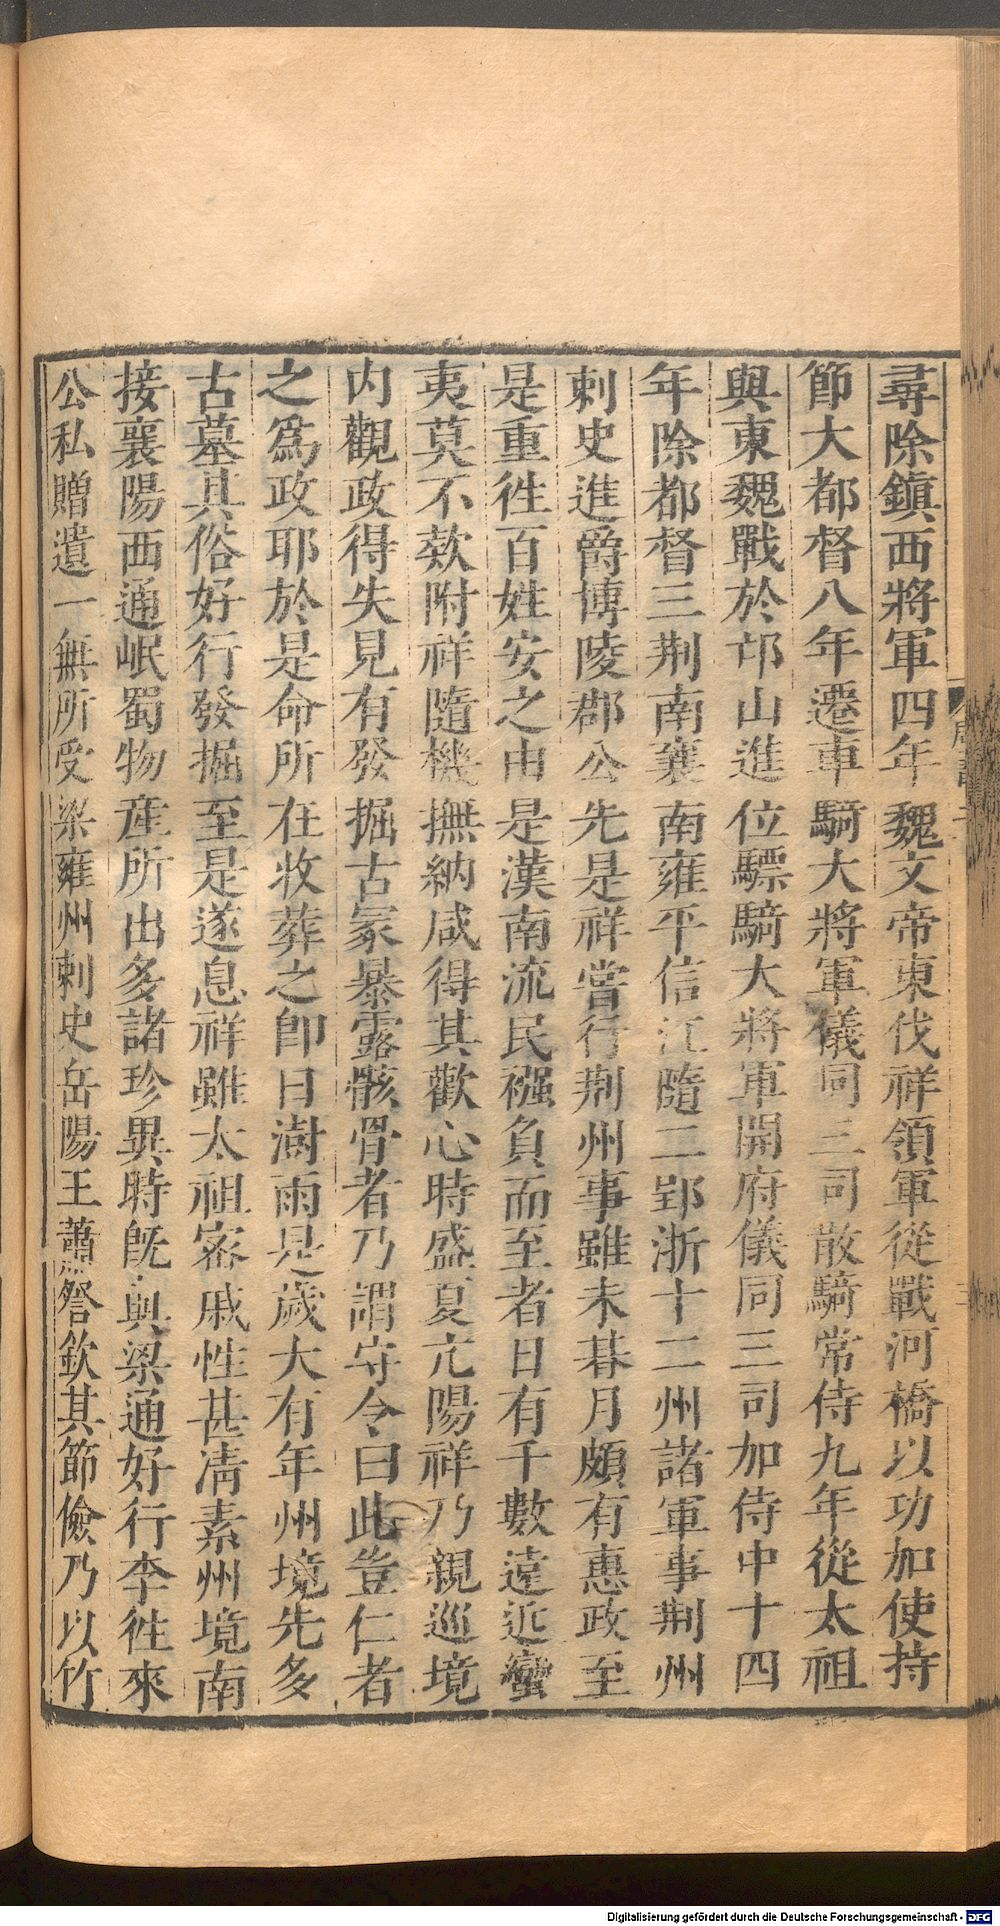 尋除鎭西將軍四年魏文帝東伐祥領軍從戰河橋以功加使持
節大都督八年遷車騎大將軍儀同三司散騎常侍九年從太祖
與東魏戰於邙山進位驃騎大將軍開府儀同三司加侍中十四
年除都督三荆南襄南雍平信江隨二郢淅十二州諸軍事荆州
刺史進爵博陵郡公先是祥嘗行荆州事雖未朞月頗有惠政至
是重徃百姓安之由是漢南流民襁負而至者日有千數遠近蠻
夷莫不欵附祥隨機撫納咸得其歡心時盛夏亢陽祥乃親巡境
内觀政得失見有發掘古冢暴露骸骨者乃謂守令曰此豈仁者
之爲政耶於是命所在收葬之卽日澍雨是歲大有年州境先多
古墓其俗好行發掘至是遂息祥雖太祖密戚性甚淸素州境南
接襄陽西通岷蜀物産所出多諸珍異時旣與梁通好行李徃來
公私贈遺一無所受梁雍州刺史岳陽王蕭詧欽其節儉乃以竹
Digitalisierung gefördert durch die Deutsche Forschungsgemeinschaft - DFG